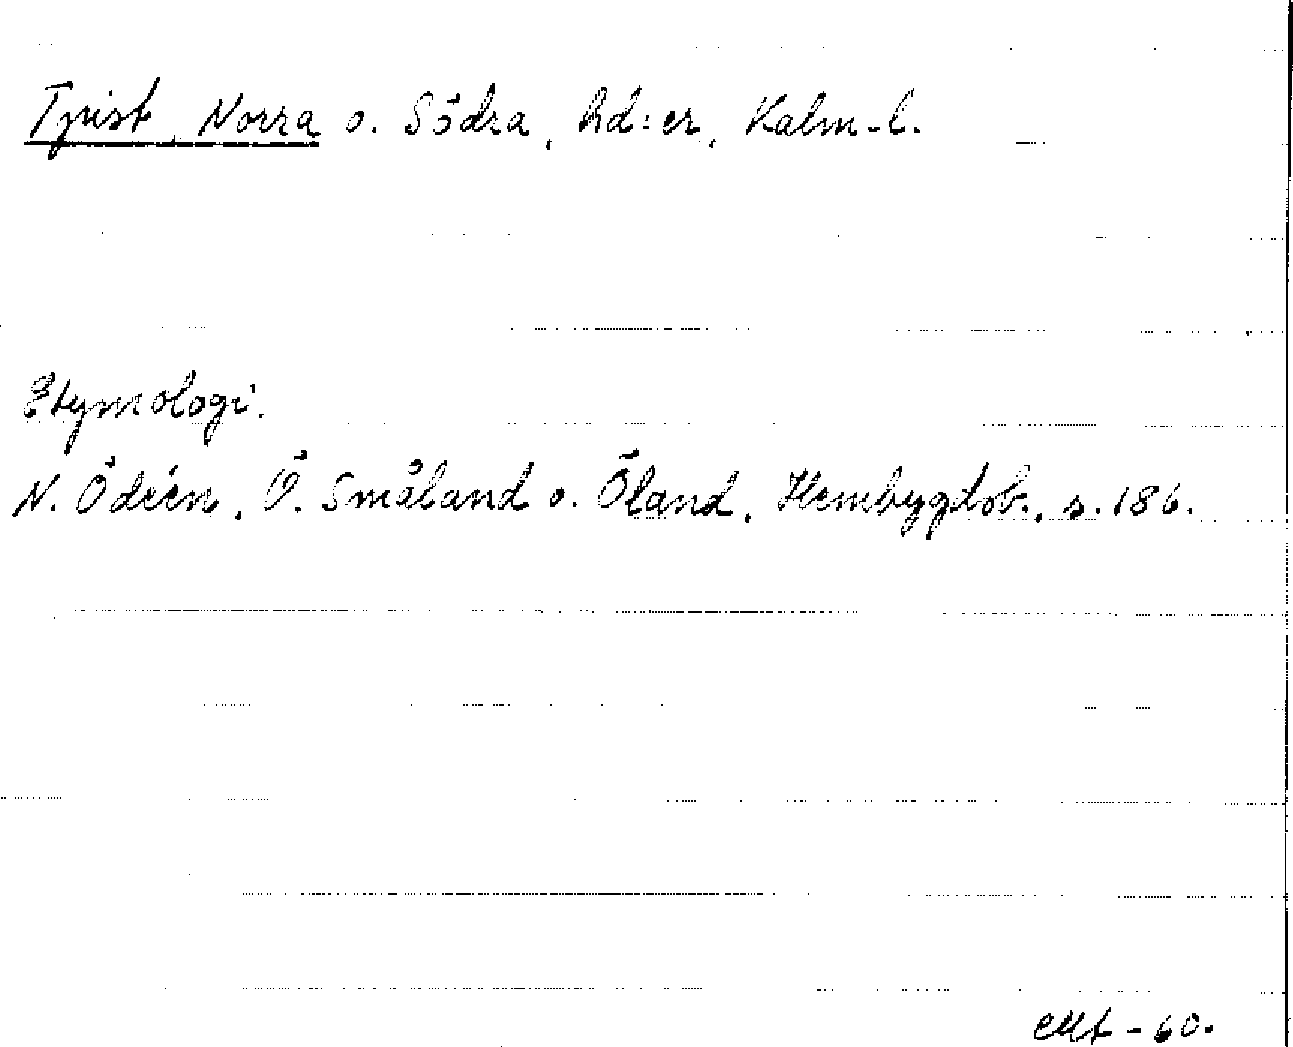 Tjust, Norra o. Södra, hd:er, Kalm.l.
Etymologi.
N. Ödéen, Ö. Småland o. Öland, Hembygdsb., s. 186.
-60.